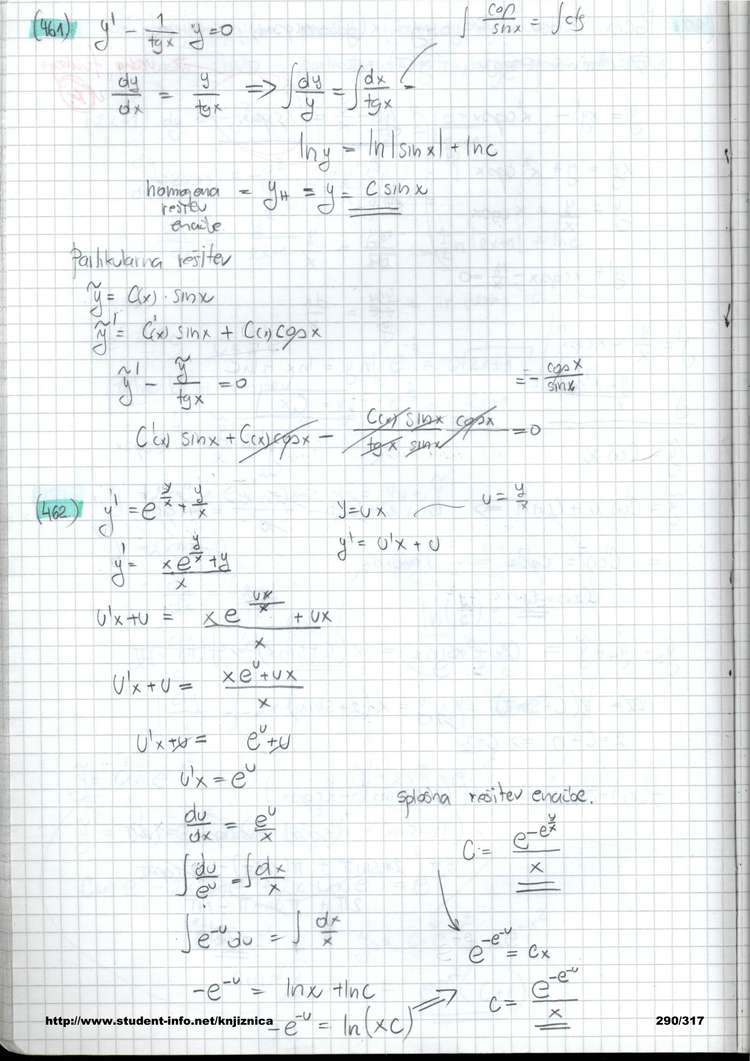 (461) y' - 1/tgx y = 0
∫ cosx/sinx = ∫ctg
dy/dx = y/tgx => ∫ dy/y = ∫ dx/tgx
ln y = ln|sinx| + lnc
homogena rešitev enačbe = yH = y = C sinx
Partikularna rešitev
ỹ = C(x) · sinx
ỹ' = C'(x) sinx + C(x) cosx
ỹ' - ỹ/tgx = 0
= - cosx/sinx
C'(x) sinx + C(x) cosx - C(x) sinx cosx / tgx sinx = 0
(462) y' = e^(y/x) + y/x
y = ux
u = y/x
y' = (x e^(y/x) + y)/x
y' = u'x + u
u'x + u = (x e^(ux/x) + ux)/x
u'x + u = (x e^u + ux)/x
u'x + u = e^u + u
u'x = e^u
du/dx = e^u/x
∫ du/e^u = ∫ dx/x
∫ e^-u du = ∫ dx/x
-e^-u = lnx + lnc
-e^-u = ln(xc) =>
splošna rešitev enačbe.
C = e^(-e^(y/x))/x
e^(-e^-u) = cx
c = e^(-e^-u)/x
http://www.student-info.net/knjiznica
290/317